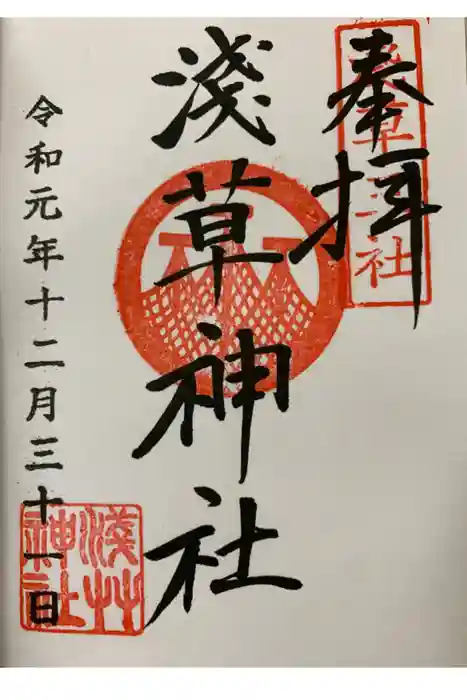 奉拝
浅草神社
淺草神社
令和元年十二月三十一日
淺草神社